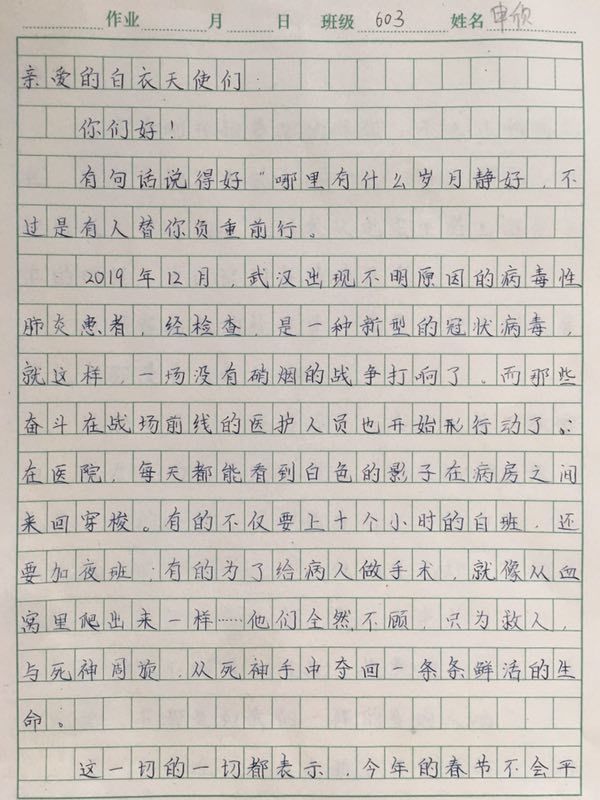 作业 月 日 班级 603 姓名 申欣
亲爱的白衣天使们:
你们好!
有句话说得好"哪里有什么岁月静好,不
过是有人替你负重前行。
2019年12月,武汉出现不明原因的病毒性
肺炎患者,经检查,是一种新型的冠状病毒,
就这样,一场没有硝烟的战争打响了。而那些
奋斗在战场前线的医护人员也开始形行动了。:
在医院,每天都能看到白色的影子在病房之间
来回穿梭。有的不仅要上十个小时的白班,还
要加夜班;有的为了给病人做手术,就像从血
窝里爬出来一样……他们全然不顾,只为救人,
与死神周旋,从死神手中夺回一条条鲜活的生
命。
这一切的一切都表示,今年的春节不会平